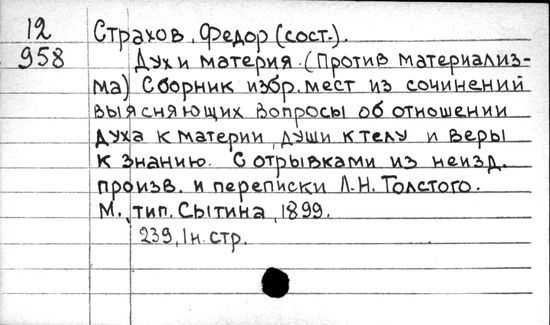 12 Страхов, Федор (сост.).
958 Дух и материя. (Против материализ-
ма) Сборник избр. мест из сочинений
выясняющих вопросы об отношении
духа к материи, души к телу и веры
к знанию. С отрывками из неизд.
произв. и переписки Л.Н. Толстого.
М., тип. Сытина, 1899.
239, 1 н. стр.